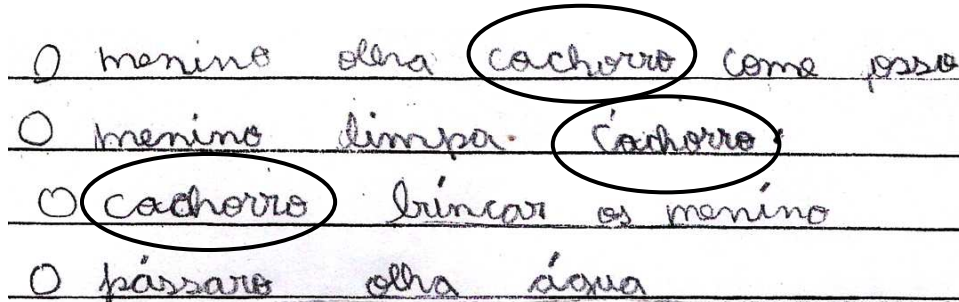 O menino olha cachorro come osso
O menino limpa. cachorro.
O cachorro brincar os menino
O pássaro olha água